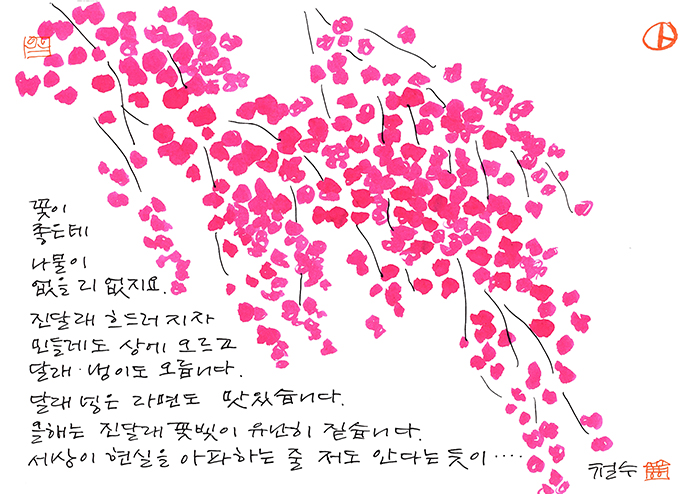 꽃이
좋은데
나물이
없을 리 없지요.
진달래 흐드러지자
민들레도 상에 오르고
달래·냉이도 오릅니다.
달래 넣은 라면도 맛있습니다.
올해는 진달래 꽃빛이 유난히 짙습니다.
세상이 현실을 아파하는 줄 저도 안다는 듯이····
철수